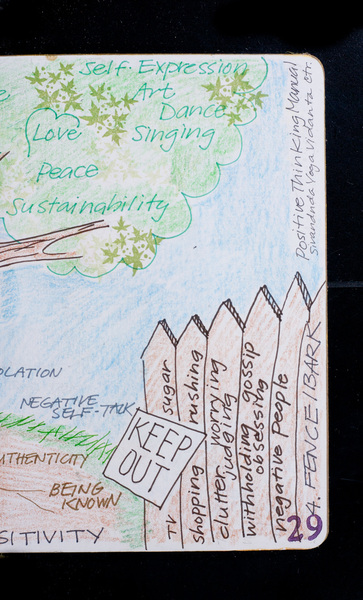 Self-Expression
Art
Dance
Love
Singing
Peace
Sustainability
Positive Thinking Manual
Sivananda Yoga Vidanta Ctr.
NEGATIVE
SELF-TALK
BEING
KNOWN
KEEP
OUT
TV sugar
shopping rushing
clutter worrying
judging
withholding gossip
obsessing
negative People
4. FENCE/BARK
29